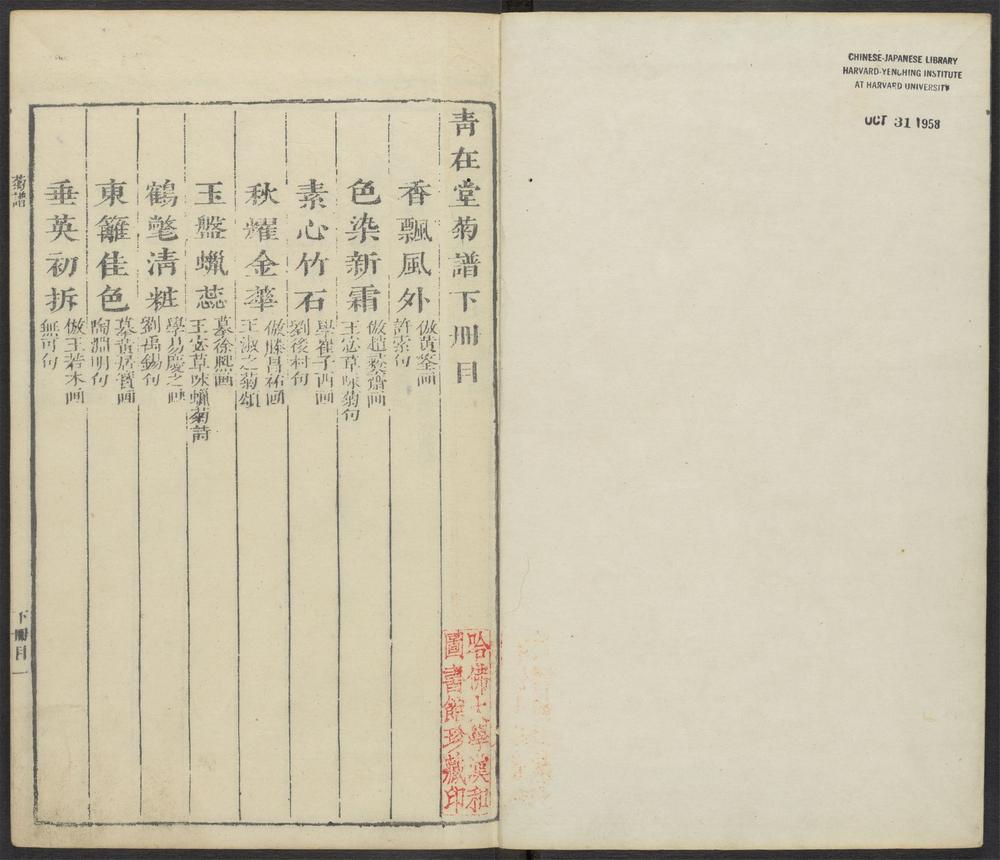 CHINESE-JAPANESE LIBRARY
HARVARD-YENCHING INSTITUTE
AT HARVARD UNIVERSITY
OCT 31 1958
青在堂菊譜下冊目
香飄風外
倣黃筌画
許棠句
色染新霜
倣趙彝齋画
王宓草咏菊句
素心竹石
學崔子西画
劉後村句
秋耀金華
倣滕昌祐画
王淑之菊頌
玉盤蠟蕊
摹徐熙画
王宓草咏蠟菊詩
鶴氅清粧
學易慶之画
劉禹錫句
東籬佳色
摹黃居寳画
陶淵明句
垂英初拆
倣王若水画
無可句
菊譜
下冊目
一
哈佛大學漢和
圖書館珍藏印